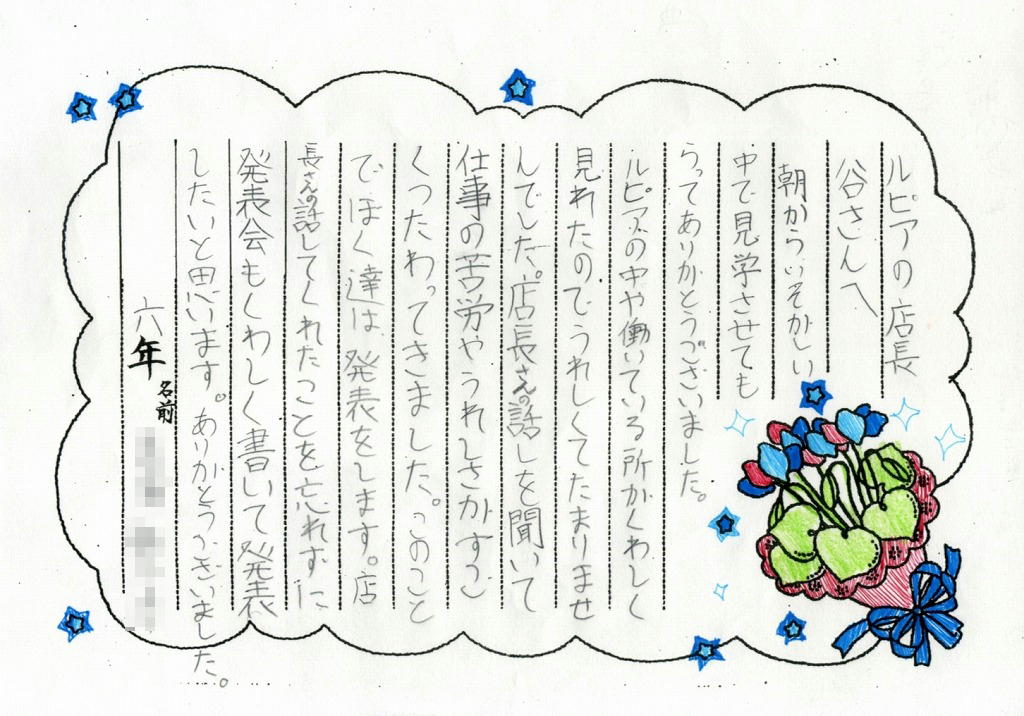 ルピアの店長
谷さんへ
朝からいそがしい
中で見学させても
らってありがとうございました。
ルピアの中や働いている所がくわしく
見れたのでうれしくてたまりませ
んでした。店長さんの話しを聞いて
仕事の苦労やうれしさがすご
くつたわってきました。このこと
でぼく達は、発表をします。店
長さんの話してくれたことを忘れずに
発表会もくわしく書いて発表
したいと思います。ありがとうございました。
六年 名前